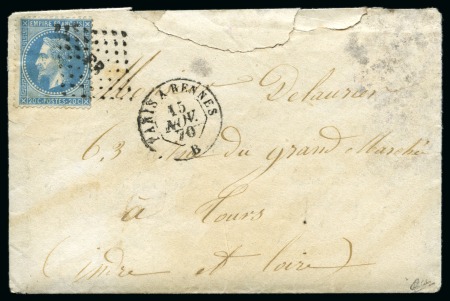 EMPIRE FRANÇAIS
20 C POSTES 20 C
PARIS A RENNES
15
NOV.
70
B
Delaurier
63 du grand Marché
à Tours
(indre et loire)